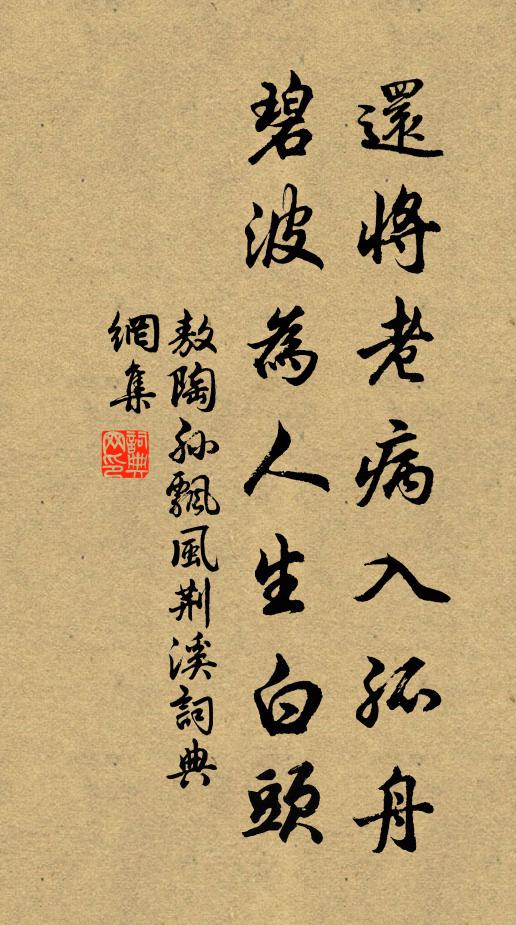 還將老病入孤舟
碧波為人生白頭
敖陶孙飄風荆溪詞典
網集
詞典
网印